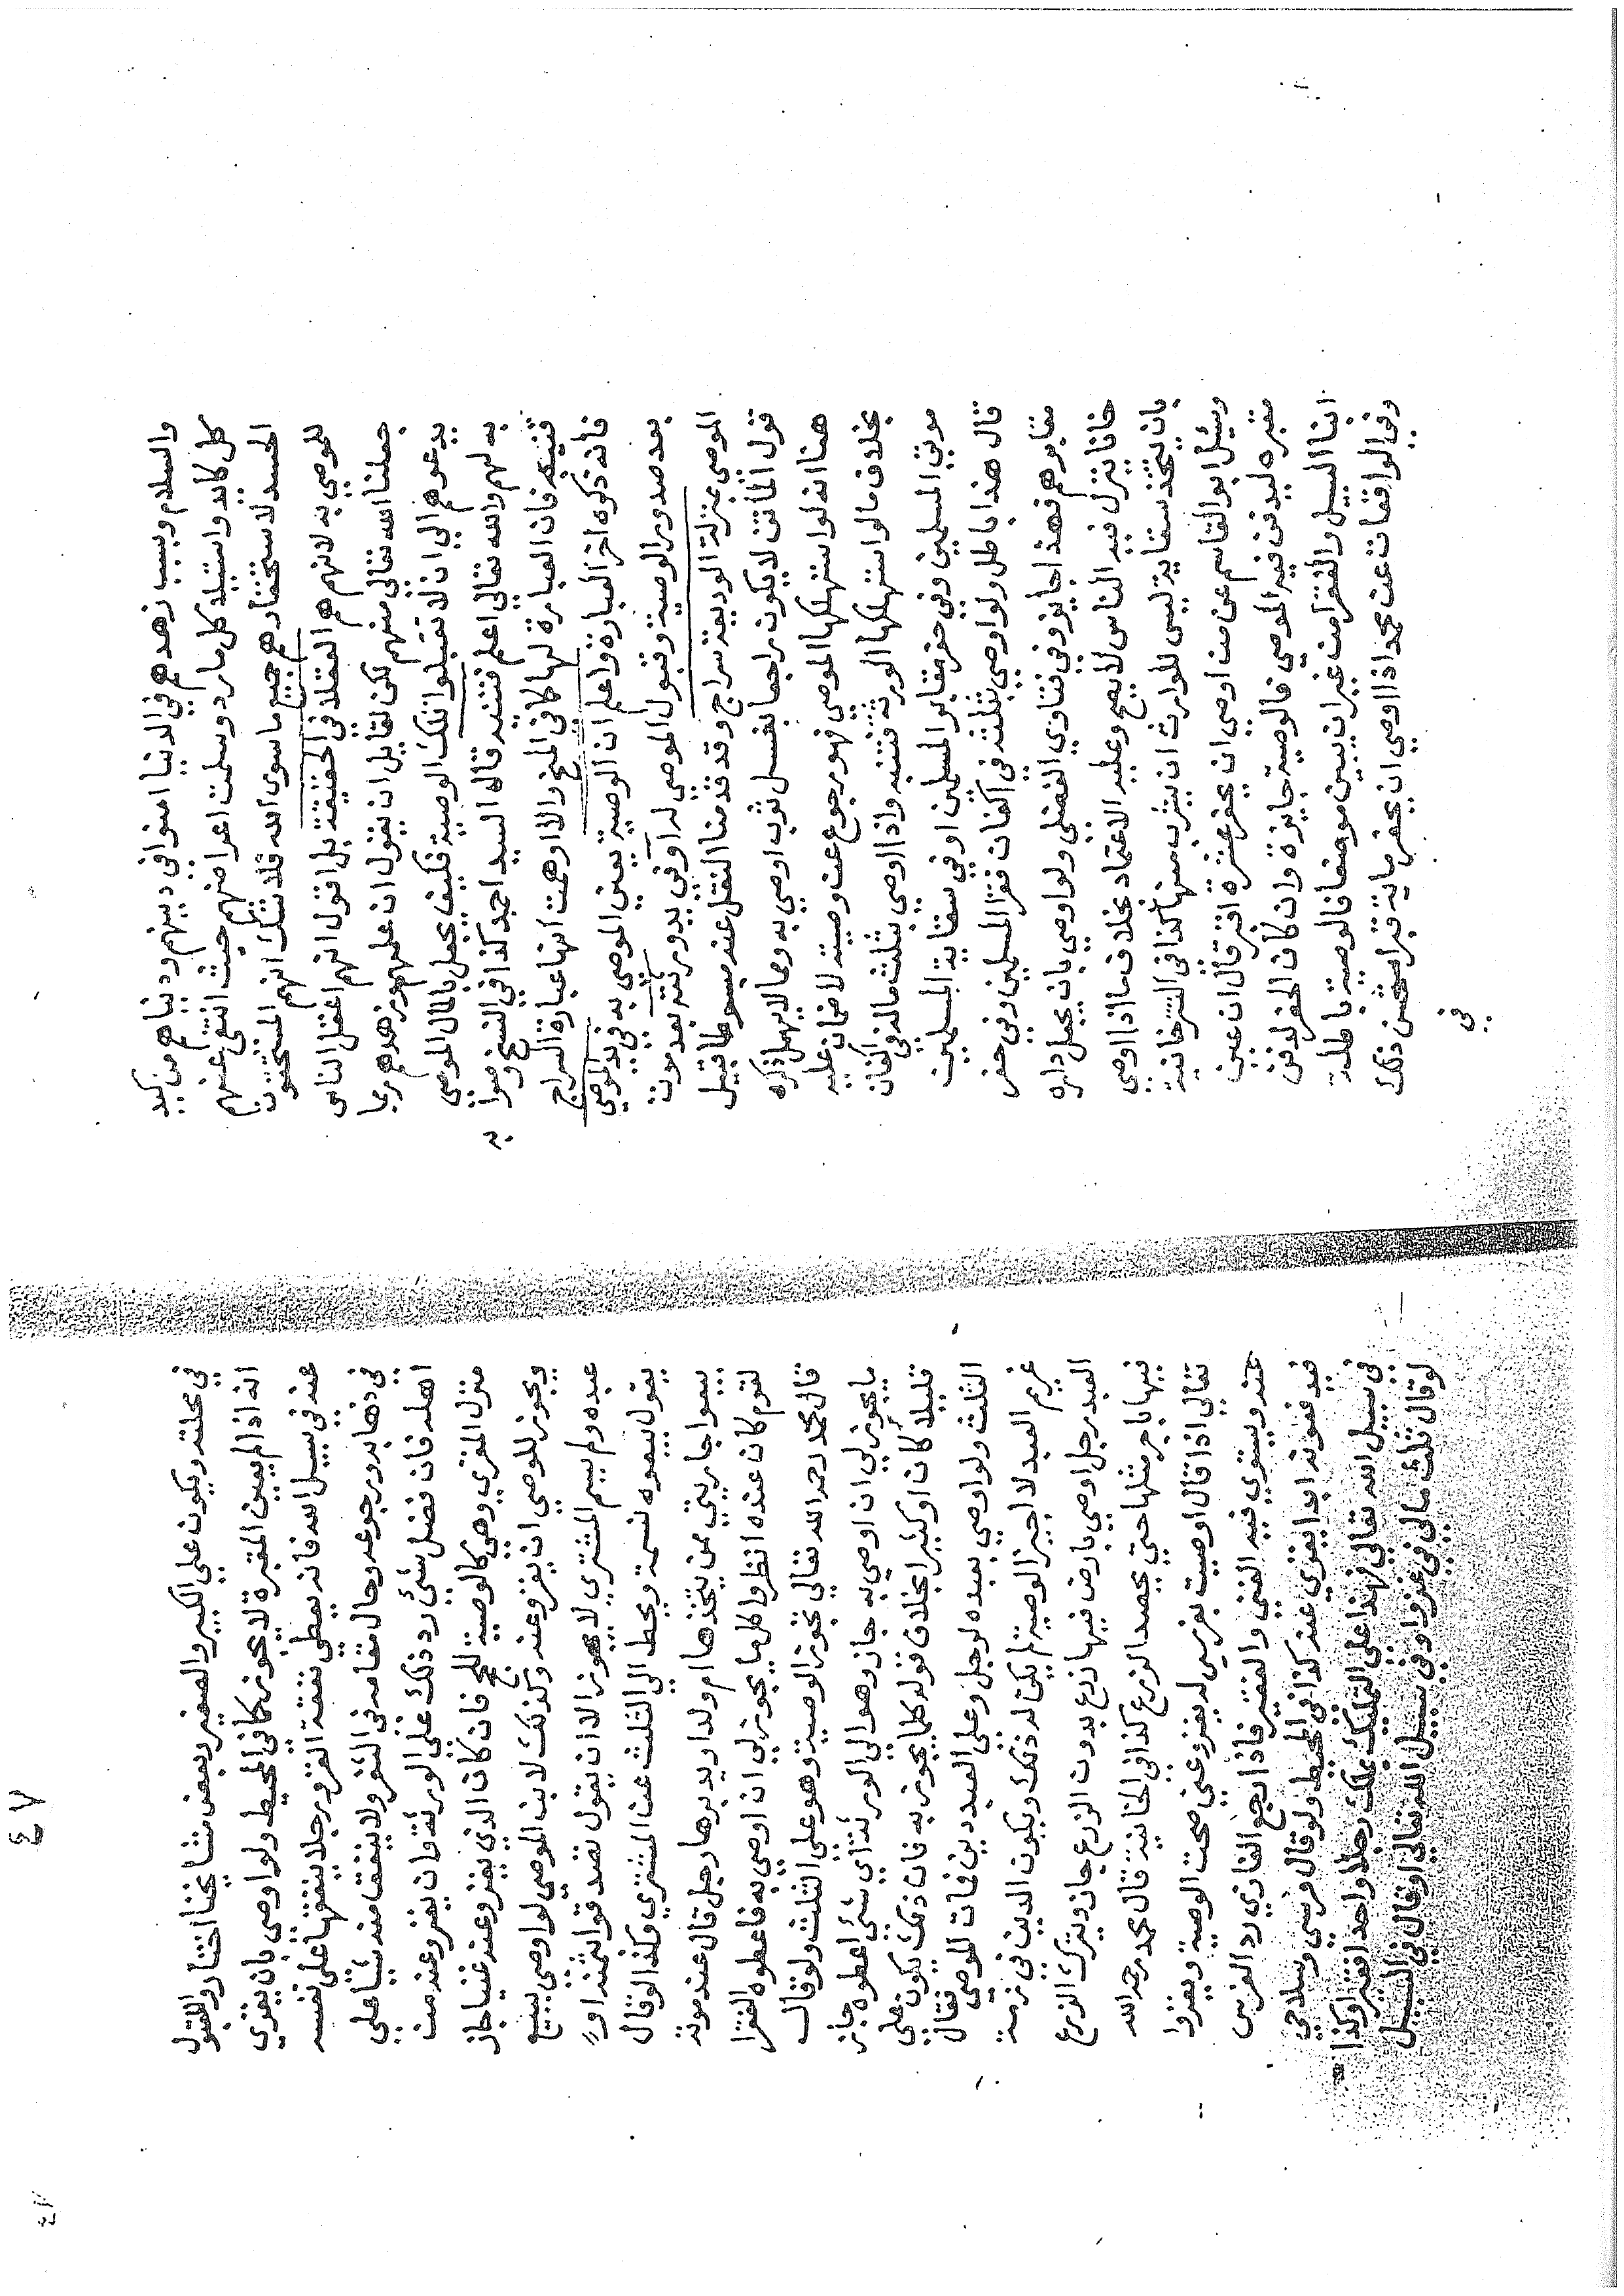 والسلام وبسبب زهدهم في الدنيا امنوا في دينهم ودنياهم من كيد
كل كايد واستبلد كل مارد وسلمت اعراضهم حيث انتفى عنهم
الحسد لاستحقارهم جميع ماسوى الله فلاشك انهم المستحقون
للموصي به لانهم هم العقلا في الحقيقة بل اقول انهم اعقل الناس
جعلنا الله تعالي منهم لكن لقايل ان يقول ان علمهم وزهدهم ربما
يدعوهم الي ان لا تقبلوا تلك الوصية فكيف يجعل بالمال الموصي
به لهم والله تعالي اعلم فتنبه قاله السيد احمد كذا في النسخ وصوا
تثنيه فان العبارة لها كما في المنح والا اوهمت انها عبارة السراج
فانه ذكره اخر العبارة واعلم ان الوصية يعني الموصي به في يد الموصي
بعد صدور الوصية وقبول الموصي له او في يد ورثته بعد موت
الموصي بمنزلة الوديعة سراج وقد قدمنا النقل عند مبسوطا قبيل
قول الماتن لا يكون راجعا بغسل ثوب اوصي به ومما لا يهمل ذكره
هنا انه لو استهلكها الموصي فهو رجوع عن وصيته لا ضمان عليه
بخلاف ما لو استهلكها الورثة فتنبه واذا اوصي بثلث ماله في اكفان
موتي المسلمين وفي حفر مقابر المسلمين او في سقاية المسلمين
قال هذا باطل ولو اوصي بثلثه في اكفان فقرا المسلمين وفي حفر
مقابرهم فهذا جايز وفي فتاوي الفضلي ولو اوصي بان يجعل داره
خانا ينزل فيه الناس لا يصح وعليه الاعتماد بخلاف ما اذا اوصي
بان يتخذ سقاية ليس للوارث ان يشرب منها كذا في التترخانية
وسيل ابو القاسم عن من اوصي ان يحفر عشرة اقبر قال ان عين
مقبره ليدفن فيه الموصي فالوصية جايزة وان كان الحفر لدفن
ابنا السبيل والفقرا من غير ان يبين موضعا فالوصية باطلة
وفي الواقعات عن محمد اذا اوصي ان يحفر ماية قبر استحسن ذلك
في
٤٧
في محلته ويكون علي الكبير والصغير وبعض مشايخنا اختار والمقول
انه اذا لم يعين المقبرة لا يجوز كما في المحيط ولو اوصي بان يغزي
عنه في سبيل الله فانه يعطي نفقة الغزو رجلا ينفقها علي نفسه
في ذهابه ورجوعه وحال مقامه في الثغر ولا ينفق منه شيا علي
اهله فان فضل شئ رد ذلك علي الورثة وان يغزو عنه من
منزل المغزي وهي كالوصية للحج فان كان الذي يغزو عنه غنيا جاز
ويجوز للموصي ان يغزو عنه وكذلك لابن الموصي لو اوصي ببيع
عبده ولم يسم المشتري لا يجوز الا ان يقول تصدقوا بثمنه او
يقول بيعوه نسمة ويحط الي الثلث عن المشتري وكذا لو قال
بيعوا جاريتي ممن يتخذها ام ولد او يدبرها رجل قال عند موته
لقوم كان عنده انظروا كل ما يجوز لي ان اوصي به فاعطوه الفقرا
قال محمد رحمه الله تعالي تجوز الوصية وهو علي الثلث ولو قال
ما يجوز لي ان اوصي به جاز وهو الي الورثة اي شئ اعطوه جاز
قليلا كان او كثيرا بخلاف قوله كلما يجوز به فان ذلك يكون علي
الثلث ولو اوصي بعبده لرجل وعلي العبد دين فمات الموصي فقال
غريم العبد لا اجيز الوصية لم يكن له ذلك ويكون الدين في ذمة
العبد رجل اوصي بارض فيها زرع بدون الزرع جاز ويترك الزرع
فيها باجر مثلها حتي يحصد الزرع كذا في الخانية قال محمد رحمه الله
تعالي اذا قال اوصيت بفرسي ليغزو عني صحت الوصية ويغزوا
عنه ويستوي فيه الغني والفقير فاذا رجع الغازي رد الفرس
فيدفعونه ابدا يغزي عنه كذا في المحيط ولو قال فرسي وسلاحي
في سبيل الله تعالي فهذا علي التمليك يملك رجلا واحدا فقيرا وكذا
لو قال ثلث مالي في غزوا وفي سبيل الله تعالي او قال في السبيل